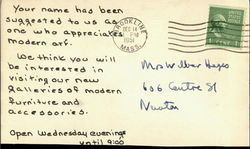 Your name has been
suggested to us as
one who appreciates
modern art.
We think you will
be interested in
visiting our new
galleries of modern
furniture and
accessories.
Open Wednesday evenings
until 9:00
BROOKLINE
DEC 14
PM
1951
MASS.
1
Mrs Wilbar Hayes
606 Centre St
Newton